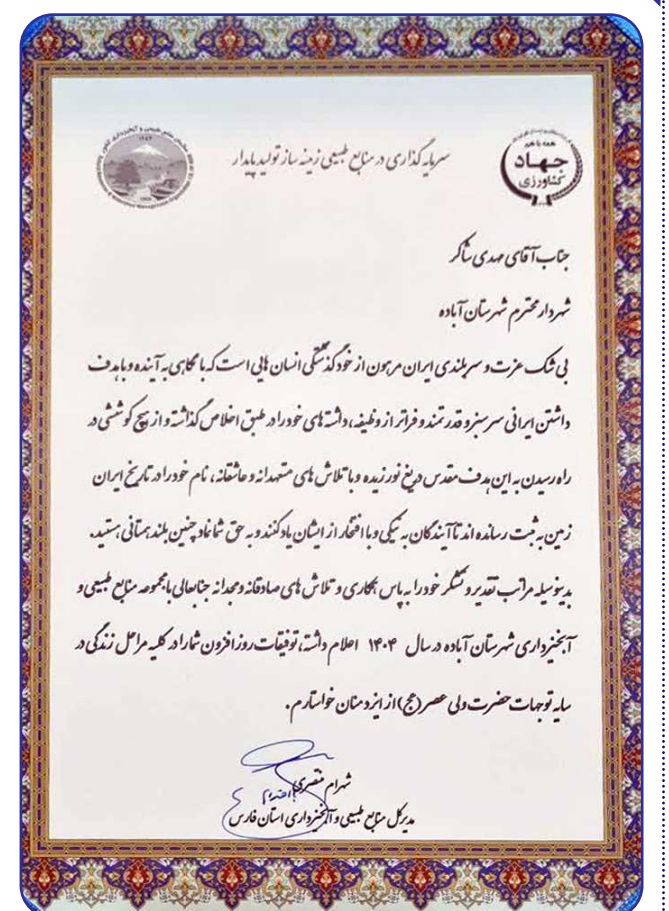 سرمایه گذاری در منابع طبیعی زمینه ساز تولید پایدار
همه با هم
جهاد
کشاورزی
جناب آقای مهدی شاکر
شهردار محترم شهرستان آباده
بی شک عزت و سربلندی ایران مرهون از خود گذشتگی انسان هایی است که با نگاهی به آینده و با هدف
داشتن ایرانی سرسبز و قدرتمند و فراتر از وظیفه، داشته های خود را در طبق اخلاص گذاشته و از هیچ کوششی در
راه رسیدن به این هدف مقدس دریغ نورزیده و با تلاش های متعهدانه و عاشقانه، نام خود را در تاریخ ایران
زمین به ثبت رسانده اند تا آیندگان به نیکی و با افتخار از ایشان یاد کنند و به حق شما نماد چنین بلند همتانی هستید.
بدینوسیله مراتب تقدیر و تشکر خود را به پاس همکاری و تلاش های صادقانه و مجدانه جنابعالی با مجموعه منابع طبیعی و
آبخیزداری شهرستان آباده در سال ۱۴۰۴ اعلام داشته، توفیقات روز افزون شما را در کلیه مراحل زندگی در
سایه توجهات حضرت ولی عصر (عج) از ایزد منان خواستارم.
شهرام
مدیرکل منابع طبیعی و آبخیزداری استان فارس